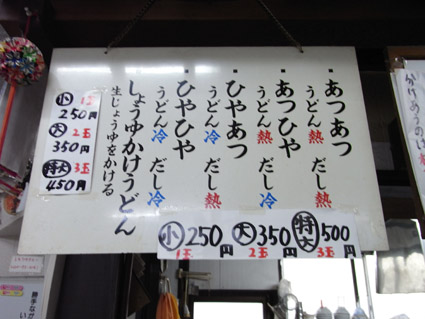 あつあつ
うどん熱 だし熱
あつひや
うどん熱 だし冷
ひやあつ
うどん冷 だし熱
ひやひや
うどん冷 だし冷
しょうゆかけうどん
生じょうゆをかける
小 1玉
250円
大 2玉
350円
特大 3玉
450円
小 250円 大 350円 特大 500円
1玉 2玉 3玉